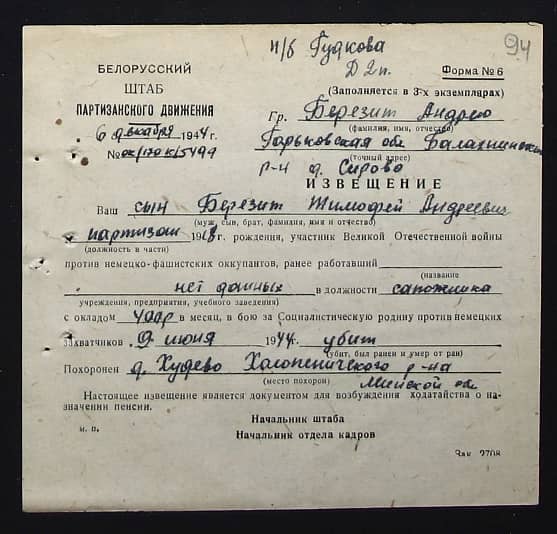 п/б Гудкова
94
Д 2п.
БЕЛОРУССКИЙ
ШТАБ
ПАРТИЗАНСКОГО ДВИЖЕНИЯ
6 декабря 1944г.
№ ок/170к/5499
Форма № 6
(Заполняется в 3-х экземплярах)
Гр. Березит Андрею
(фамилия, имя, отчество)
Горьковская обл Балахнинский
(точный адрес)
р-н д. Сирово
ИЗВЕЩЕНИЕ
Ваш сын Березит Тимофей Андреевич
(муж, сын, брат, фамилия, имя и отчество)
партизан г. рождения, участник Великой Отечественной войны
(должность в части)
против немецко-фашистских оккупантов, ранее работавший
(название
нет данных в должности сапожника
учреждения, предприятия, учебного заведения)
с окладом 400р в месяц, в бою за Социалистическую родину против немецких
захватчиков 9 июня 1944г. убит
(убит, был ранен и умер от ран)
Похоронен д. Худево Холопеничского р-на
(место похорон) Минской обл
Настоящее извещение является документом для возбуждения ходатайства о на-
значении пенсии.
Начальник штаба
м. п.
Начальник отдела кадров
Зак 2708